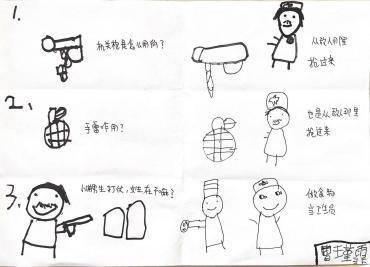 1.
机关枪是怎么用的？
从敌人那里
抢过来
2、
手雷咋用？
也是从敌人那里
抢过来
3.
小男生打仗，女生在干嘛？
做食物
当工作员
曹瑾霏